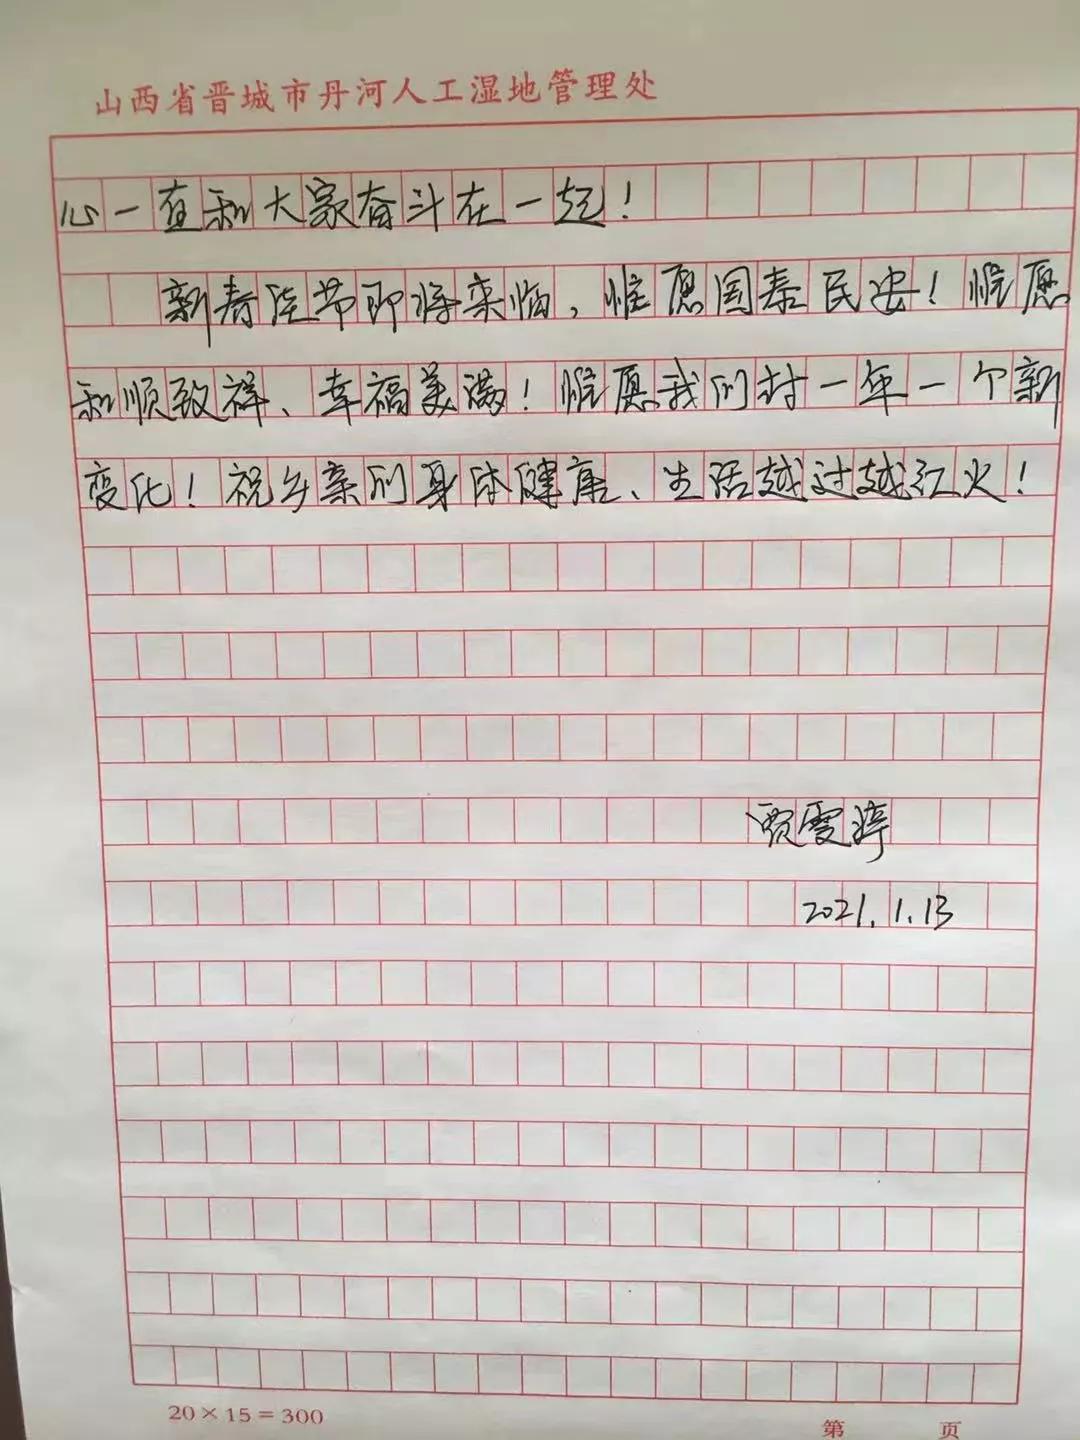 山西省晋城市丹河人工湿地管理处
心一直和大家奋斗在一起！
新春佳节即将来临，惟愿国泰民安！惟愿
和顺致祥、幸福美满！惟愿我们村一年一个新
变化！祝乡亲们身体健康、生活越过越红火！
贾雯婷
2021.1.13
20×15=300
第 页